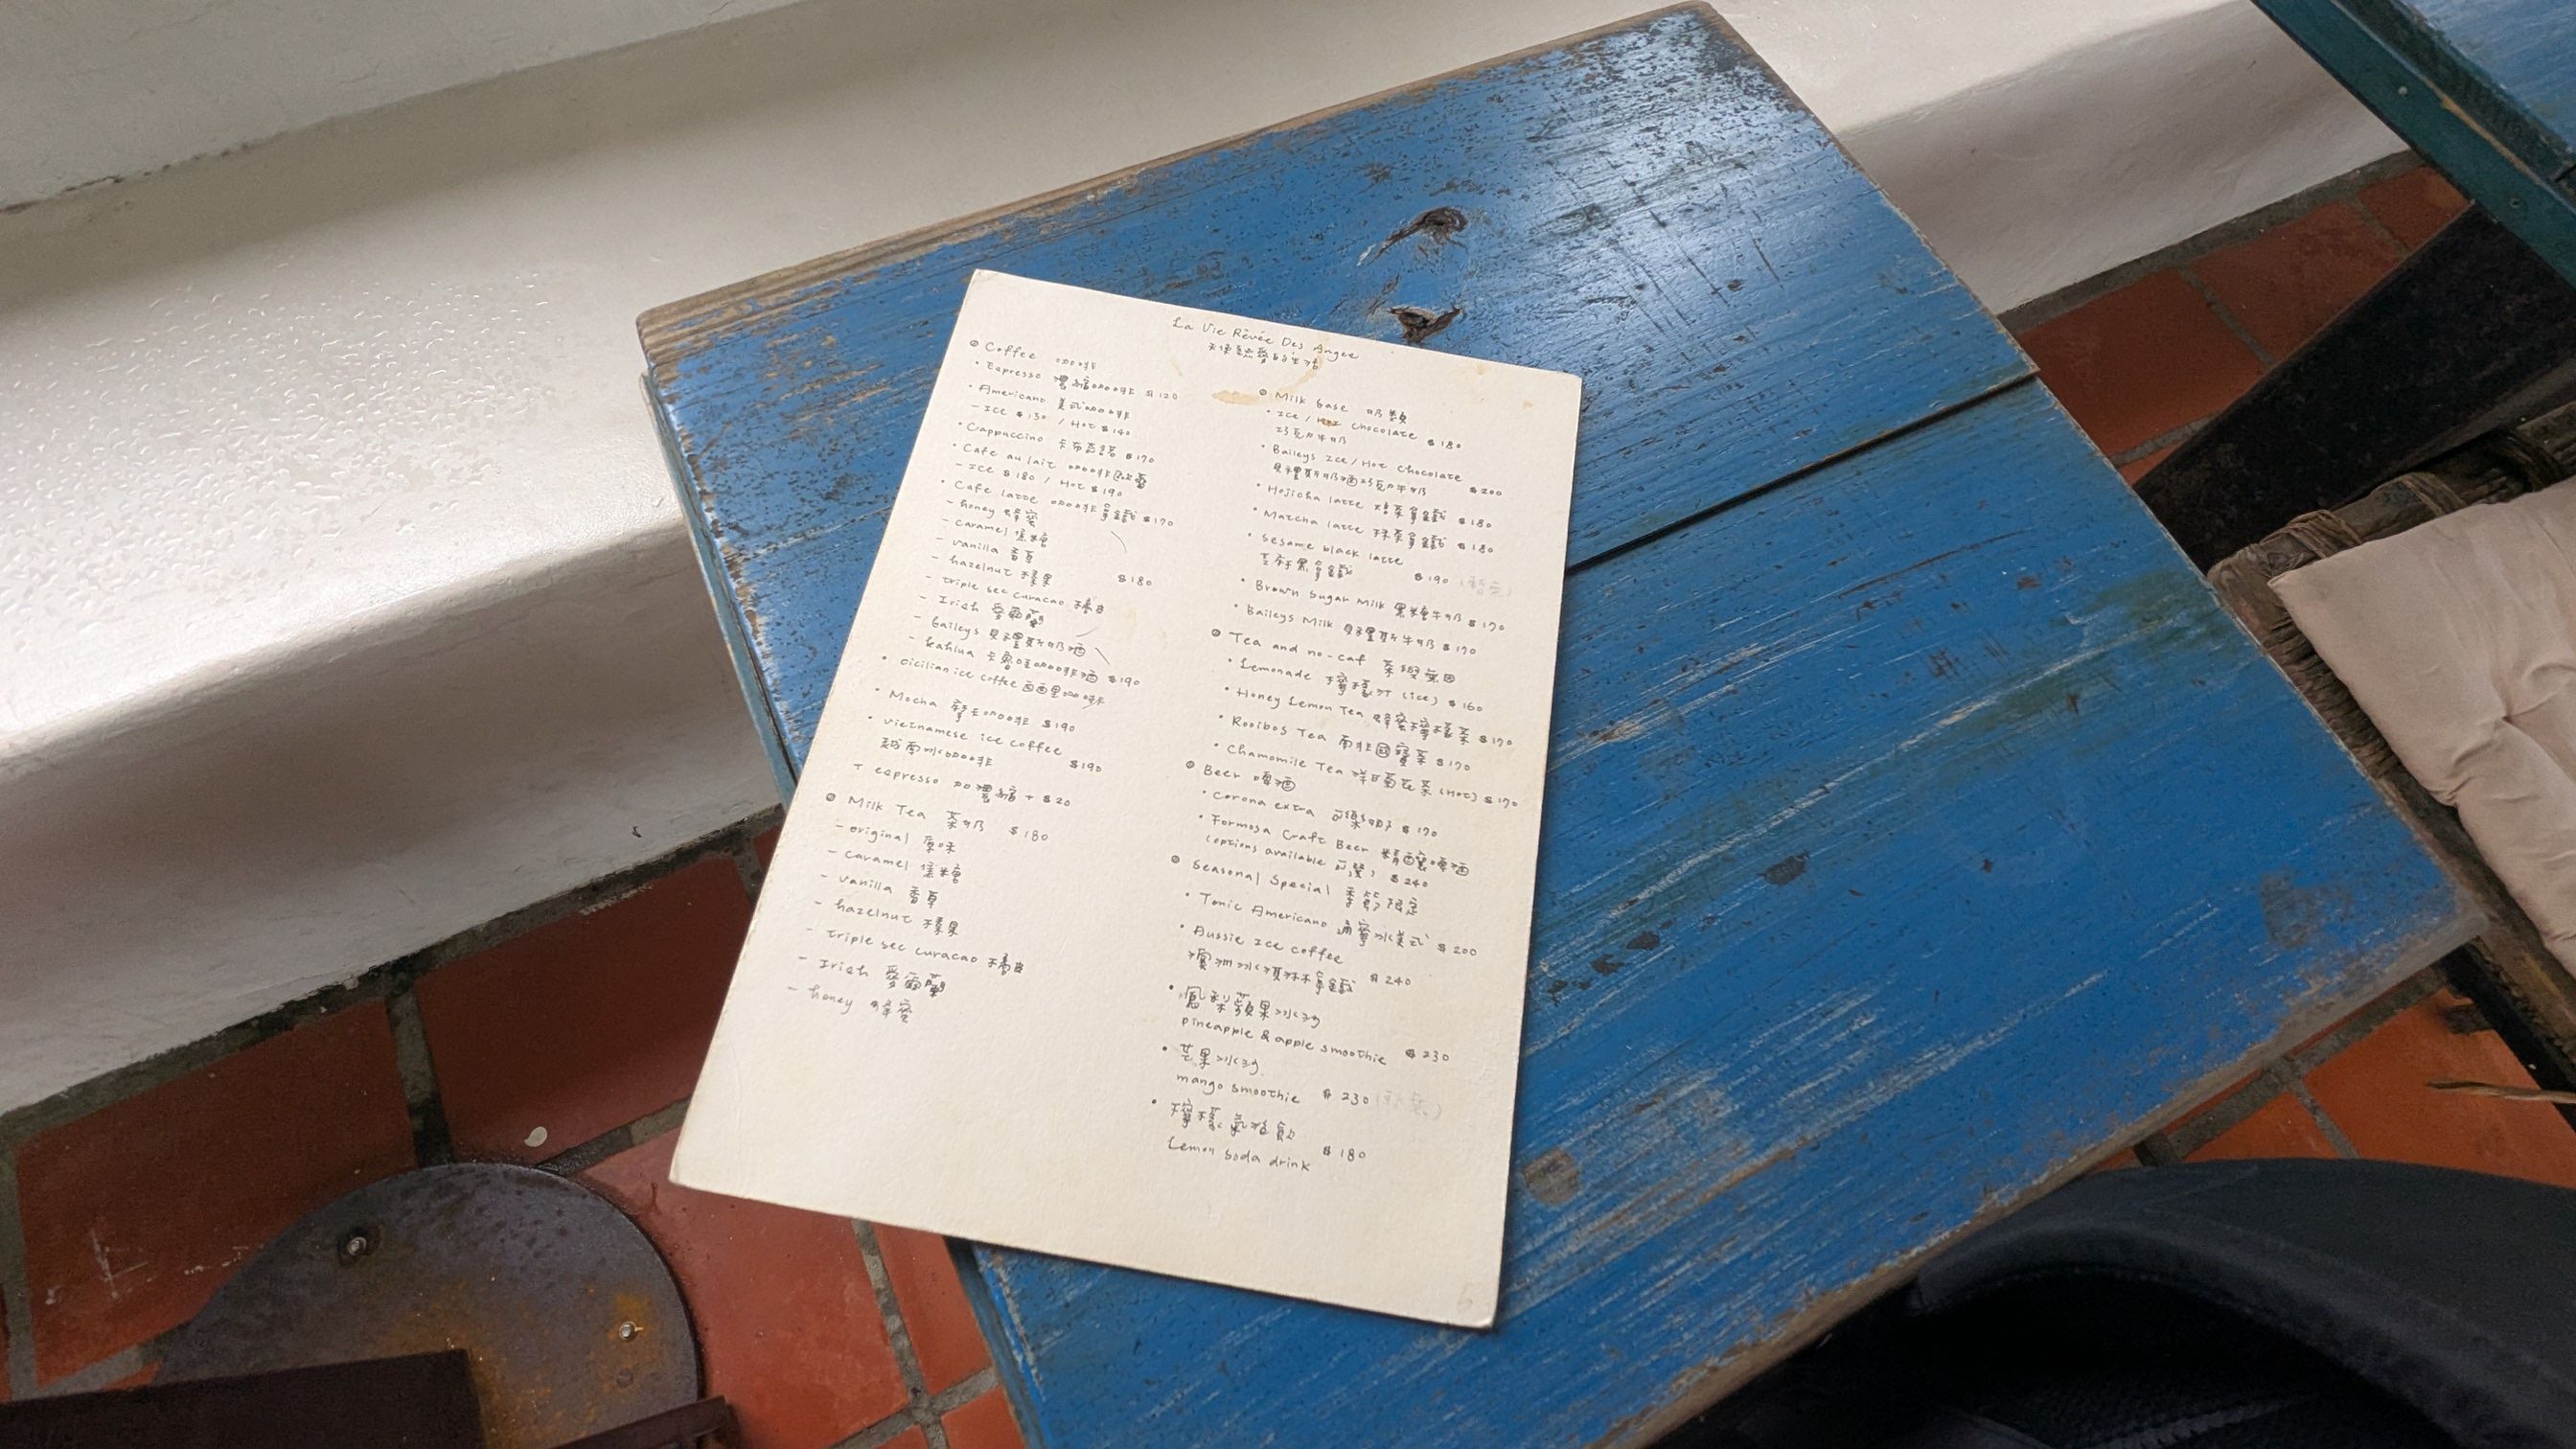 La Vie Rêvée Des Anges
天使熱愛的生活
Coffee 咖啡
• Espresso 濃縮咖啡 $120
• Americano 美式咖啡
- Ice $130 / Hot $140
• Cappuccino 卡布奇諾 $170
• Cafe au lait 咖啡歐蕾
- Ice $180 / Hot $190
• Cafe latte 咖啡拿鐵 $170
- honey 蜂蜜
- caramel 焦糖
- vanilla 香草
- hazelnut 榛果 $180
- triple sec curacao 橘皮
- Irish 愛爾蘭
- baileys 貝禮斯奶酒
- kahlua 卡魯哇咖啡酒 $190
• cicilian ice coffee 西西里咖啡
• Mocha 摩卡咖啡 $190
• vietnamese ice coffee
越南冰咖啡 $190
+ espresso 加濃縮 + $20
Milk Tea 茶奶 $180
- original 原味
- caramel 焦糖
- vanilla 香草
- hazelnut 榛果
- triple sec curacao 橘皮
- Irish 愛爾蘭
- honey 蜂蜜
Milk base 奶類
• Ice / Hot chocolate $180
巧克力牛奶
• Baileys Ice / Hot chocolate
貝禮斯奶酒巧克力牛奶 $200
• Hojicha latte 焙茶拿鐵 $180
• Matcha latte 抹茶拿鐵 $180
• sesame black latte
芝麻黑拿鐵 $190
• Brown sugar Milk 黑糖牛奶 $170
• Baileys Milk 貝禮斯牛奶 $170
Tea and no-caf 茶與無因
• Lemonade 檸檬汁 (ice) $160
• Honey Lemon Tea 蜂蜜檸檬茶 $170
• Rooibos Tea 南非國寶茶 $170
• Chamomile Tea 洋甘菊花茶 (Hot) $170
Beer 啤酒
• Corona extra 可樂娜 $170
• Formosa Craft Beer 精釀啤酒
(options available 可選) $240
Seasonal Special 季節限定
• Tonic Americano 通寧冰美式 $200
• Aussie Ice coffee
澳洲冰淇淋拿鐵 $240
• 鳳梨蘋果冰沙
pineapple & apple smoothie $230
• 芒果冰沙
mango smoothie $230
• 檸檬氣泡飲
Lemon soda drink $180